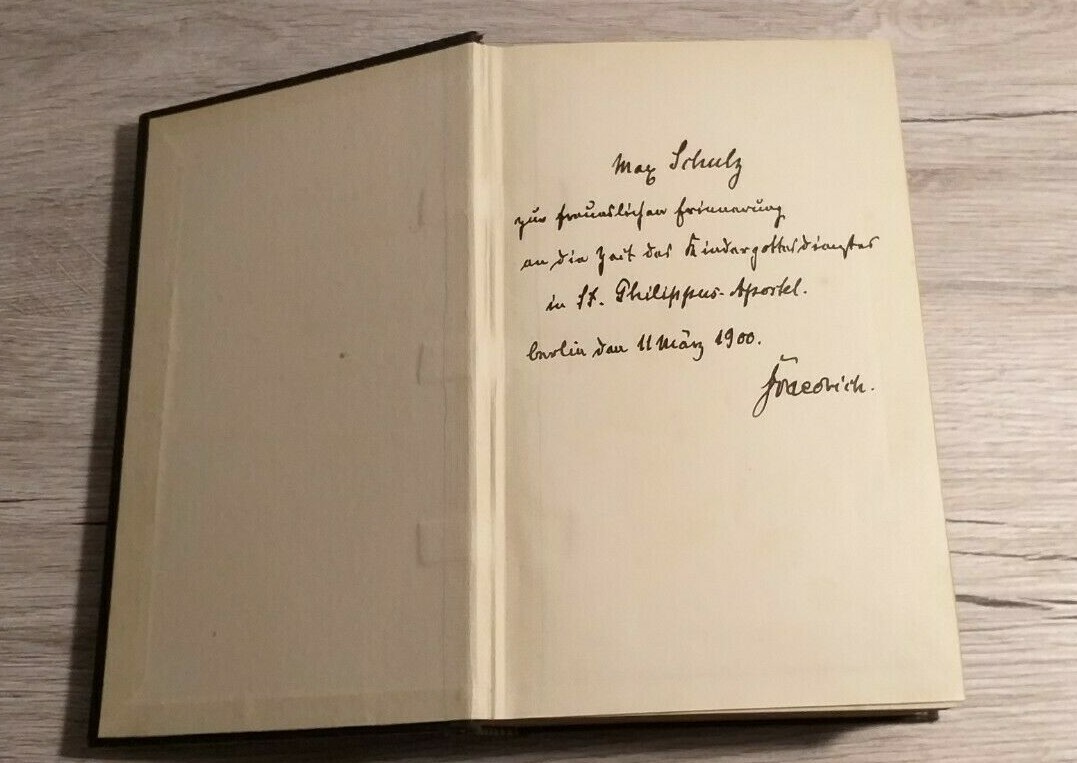 Max Schulz
zur freundlichen Erinnerung
an die Zeit des Kindergottesdienstes
in St. Philippus-Apostel.
Berlin den 11 März 1900.